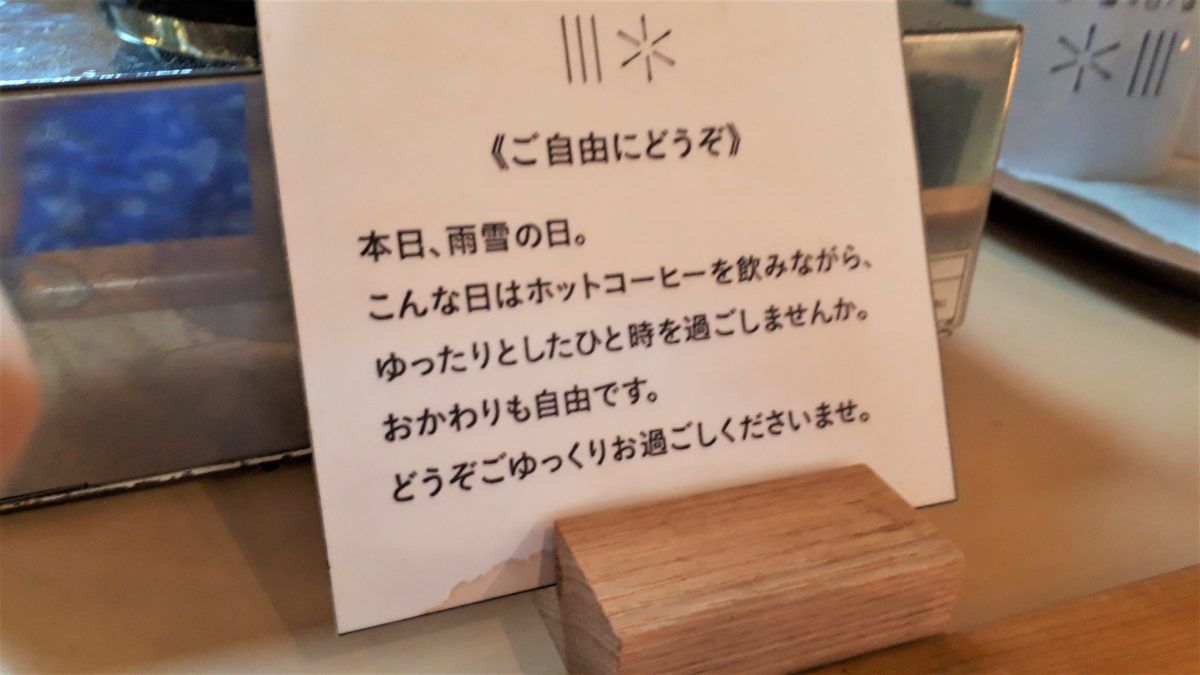 《ご自由にどうぞ》
本日、雨雪の日。
こんな日はホットコーヒーを飲みながら、
ゆったりとしたひと時を過ごしませんか。
おかわりも自由です。
どうぞごゆっくりお過ごしくださいませ。